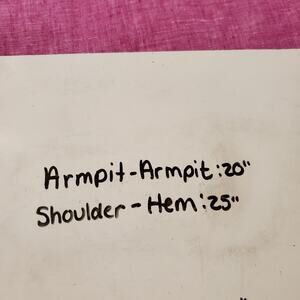 Armpit-Armpit:20"
Shoulder-Hem:25"